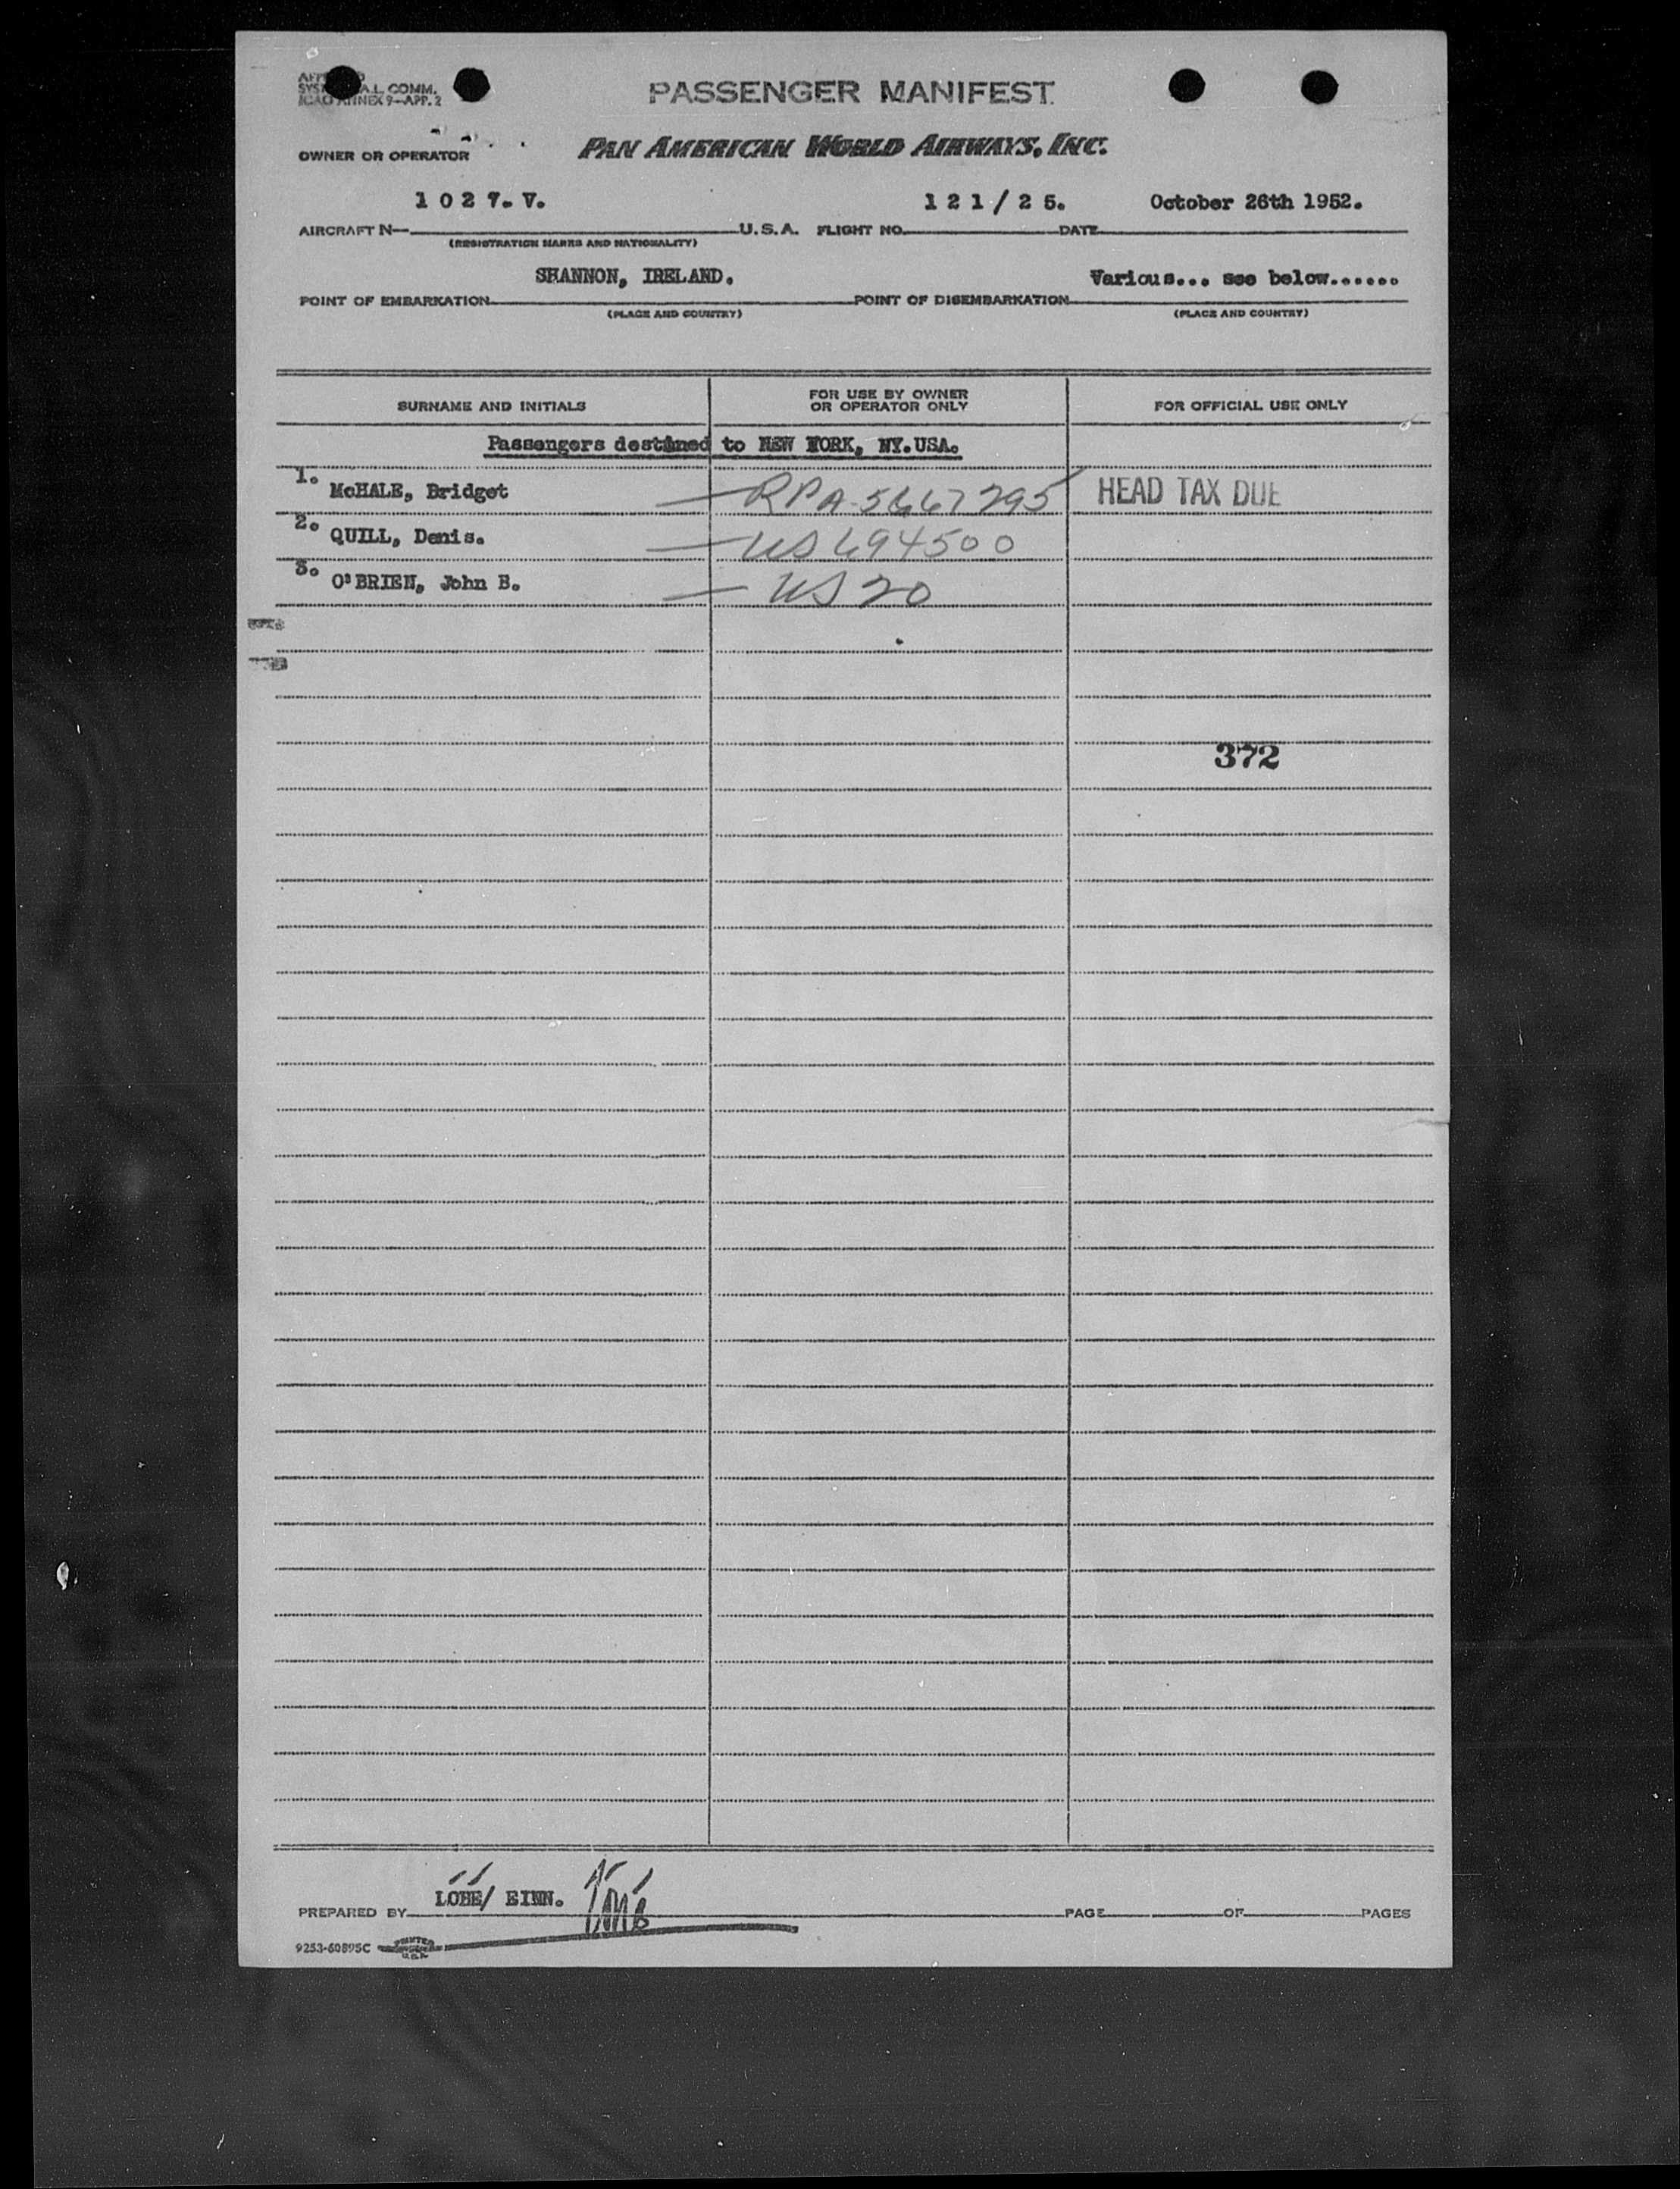 A.L. COMM.
ICAO ANNEX 9-APP. 2
PASSENGER MANIFEST
OWNER OR OPERATOR PAN AMERICAN WORLD AIRWAYS, INC.
1 0 2 7. V. 1 2 1 / 2 5. October 26th 1952.
AIRCRAFT N— U.S.A. FLIGHT NO. DATE
(REGISTRATION MARKS AND NATIONALITY)
SHANNON, IRELAND. Various... see below......
POINT OF EMBARKATION POINT OF DISEMBARKATION
(PLACE AND COUNTRY) (PLACE AND COUNTRY)
SURNAME AND INITIALS FOR USE BY OWNER OR OPERATOR ONLY FOR OFFICIAL USE ONLY
Passengers destined to NEW YORK, NY.USA.
1. McHALE, Bridget — RPA-5667295 HEAD TAX DUE
2. QUILL, Denis. — US 694500
3. O'BRIEN, John B. — US 20
372
PREPARED BY LOBE/ EINN. PAGE OF PAGES
9253-60895C PRINTED U.S.A.